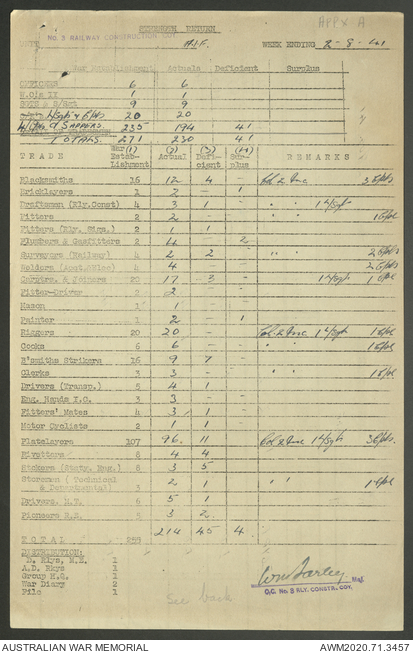 APPX A
STRENGTH RETURN
UNIT No. 3 RAILWAY CONSTRUCTION COY. A.I.F. WEEK ENDING 2-8-41
War Establishment Actuals Deficient Surplus
OFFICERS 6 6
W.Os II 1 1
9 9
20 20
SAPPERS 235 194 41
TOTALS 271 230 41
TRADE War (1) Estab- lishment (2) Actual (3) Defi- cient (4) Sur- plus REMARKS
Blacksmiths 16 12 4 - Col 2 Inc 3
Bricklayers 1 2 - 1
Draftsmen (Rly.Const) 4 3 1 - " "
Fitters 2 2 -
Fitters (Rly. Sigs.) 2 1 1
Plumbers & Gasfitters 2 4 - 2
Surveyors (Railway) 4 2 2 " "
Welders 4 4 -
Carptrs. & Joiners 20 17 3 -
Fitter-Driver 2 -
Mason 1 -
Painter 1 2 - 1
Riggers 20 20 - Col 2 Inc
Cooks 6 6 -
B'smiths Strikers 16 9 7
Clerks 3 3 - "
Drivers (Transp.) 5 4 1
Eng. Hands I.C. 3 3 -
Fitters' Mates 4 3 1
Motor Cyclists 2 1 1
Platelayers 107 96 11 Col 2 Inc
Rivetters 8 4 4
Stokers (Staty. Eng.) 8 3 5
Storemen (Technical
& Departmental) 3 2 1
Drivers. M.T. 6 5 1
Pioneers R.E. 5 3 2
TOTAL 259 214 45 4
DISTRIBUTION:
D. Rlys, M.E. 1
A.D. Rlys 1
Group H.Q. 1
War Diary 2
File 1
Maj.
O.C. No. 3 RLY. CONSTR. COY.
See back
AUSTRALIAN WAR MEMORIAL AWM2020.71.3457